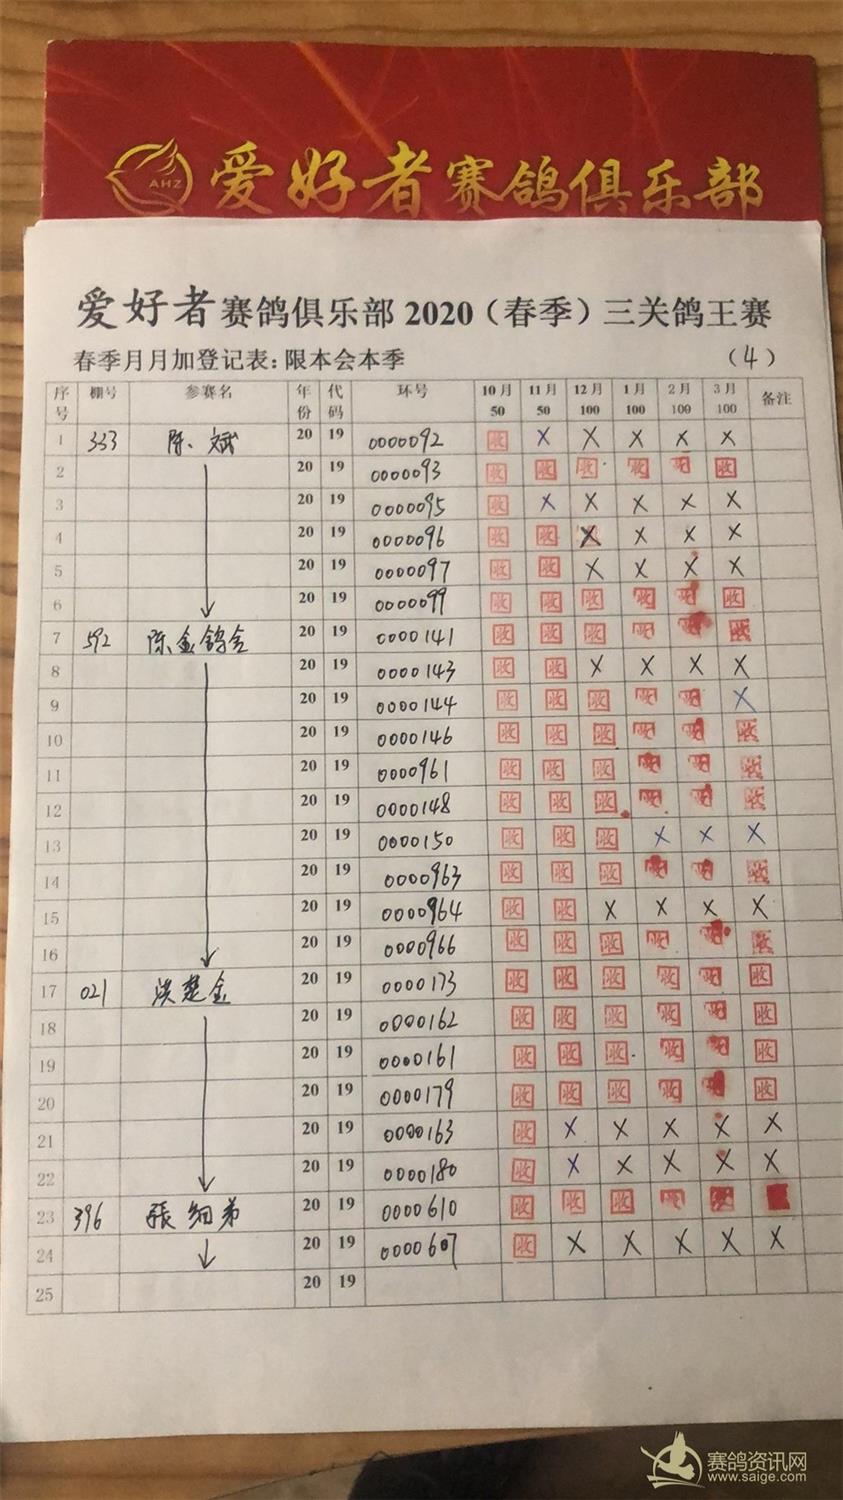 AHZ 爱好者赛鸽俱乐部
爱好者赛鸽俱乐部 2020（春季）三关鸽王赛
春季月月加登记表：限本会本季 （4）
序号 棚号 参赛名 年份 代码 环号 10月50 11月50 12月100 1月100 2月100 3月100 备注
1 333 陈斌 20 19 0000092 收 X X X X X
2 20 19 0000093 收 收 收 收 收 收
3 20 19 0000095 收 X X X X X
4 20 19 0000096 收 收 X X X X
5 20 19 0000097 收 收 X X X X
6 20 19 0000099 收 收 收 收 收 收
7 592 陈金鸽舍 20 19 0000141 收 收 收 收 收 收
8 20 19 0000143 收 收 X X X X
9 20 19 0000144 收 收 收 收 收 X
10 20 19 0000146 收 收 收 收 收 收
11 20 19 0000961 收 收 收 收 收 收
12 20 19 0000148 收 收 收 收 收 收
13 20 19 0000150 收 收 收 X X X
14 20 19 0000963 收 收 收 收 收 收
15 20 19 0000964 收 收 X X X X
16 20 19 0000966 收 收 收 收 收 收
17 021 洪楚金 20 19 0000173 收 收 收 收 收 收
18 20 19 0000162 收 收 收 收 收 收
19 20 19 0000161 收 收 收 收 收 收
20 20 19 0000179 收 收 收 收 收 收
21 20 19 0000163 收 X X X X X
22 20 19 0000180 收 X X X X X
23 396 張细弟 20 19 0000610 收 收 收 收
24 20 19 0000607 收 X X X X X
25 20 19
赛鸽资讯网
www.saige.com